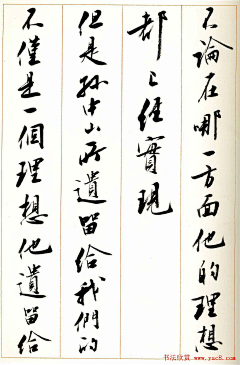 不論在哪一方面他的理想
都已經實現
但是孫中山所遺留給我們的
不僅是一個理想他遺留給
书法欣赏 www.yac8.com